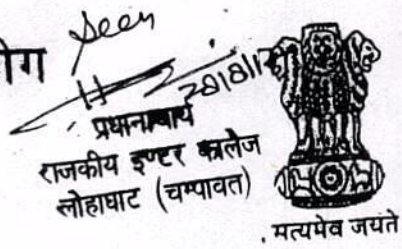 Seen
योग
28/8/15
प्रधानाचार्य
राजकीय इण्टर कालेज
लोहाघाट (चम्पावत)
सत्यमेव जयते